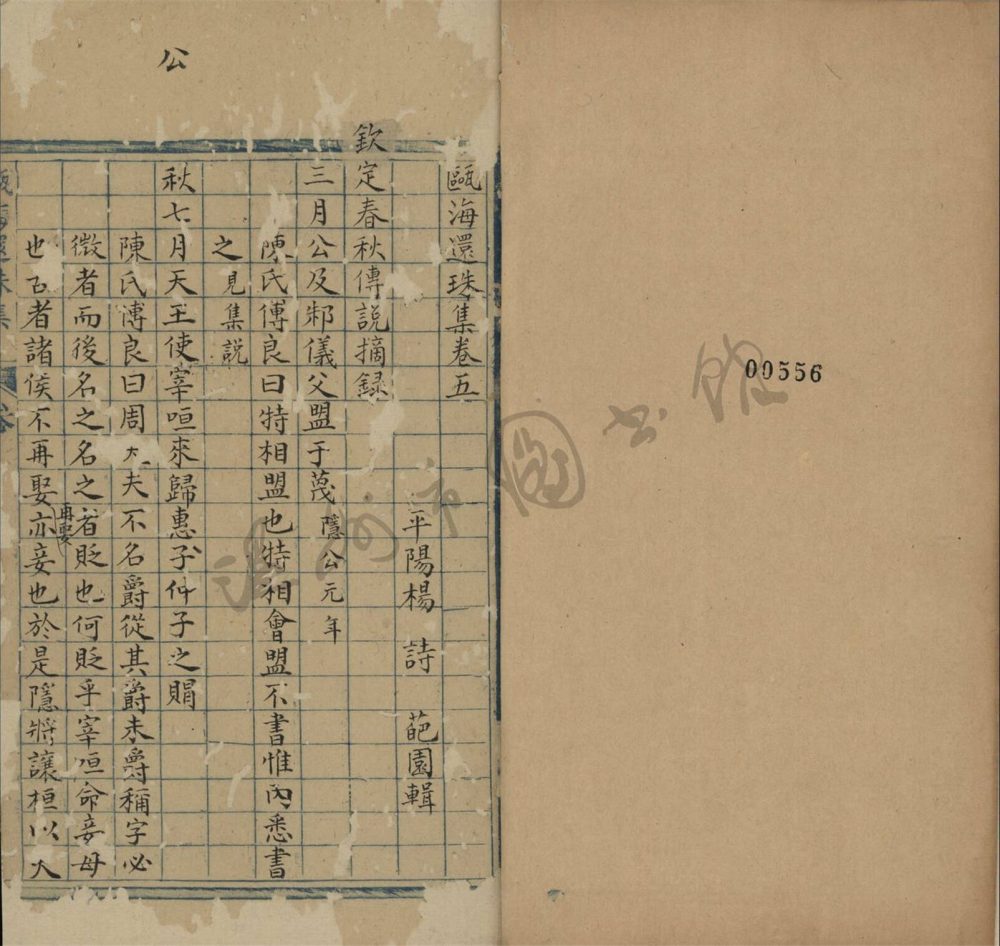 00556
温州市圖书館
公
甌海還珠集卷五
平陽楊 詩 葩園輯
欽定春秋傳説摘録
三月公及邾儀父盟于蔑隱公元年
陳氏傅良曰特相盟也特相會盟不書惟内悉書
之見集説
秋七月天王使宰咺來歸惠子仲子之賵
陳氏傅良曰周大夫不名爵從其爵未爵稱字必
微者而後名之名之者貶也何貶乎宰咺命妾母
也古者諸侯不再娶亦妾也於是隱將讓桓以大
再娶
甌海還珠集 卷